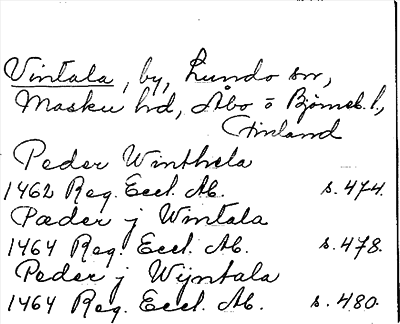 Vintala, by, Lundo sn,
Masku hd, Åbo o Björneb. l.,
Finland
Peder Winthela
1462 Reg. Eccl. Ab. s. 474.
Pæder j Wintala
1464 Reg. Eccl. Ab. s. 478.
Peder j Wijntala
1464 Reg. Eccl. Ab. s. 480.